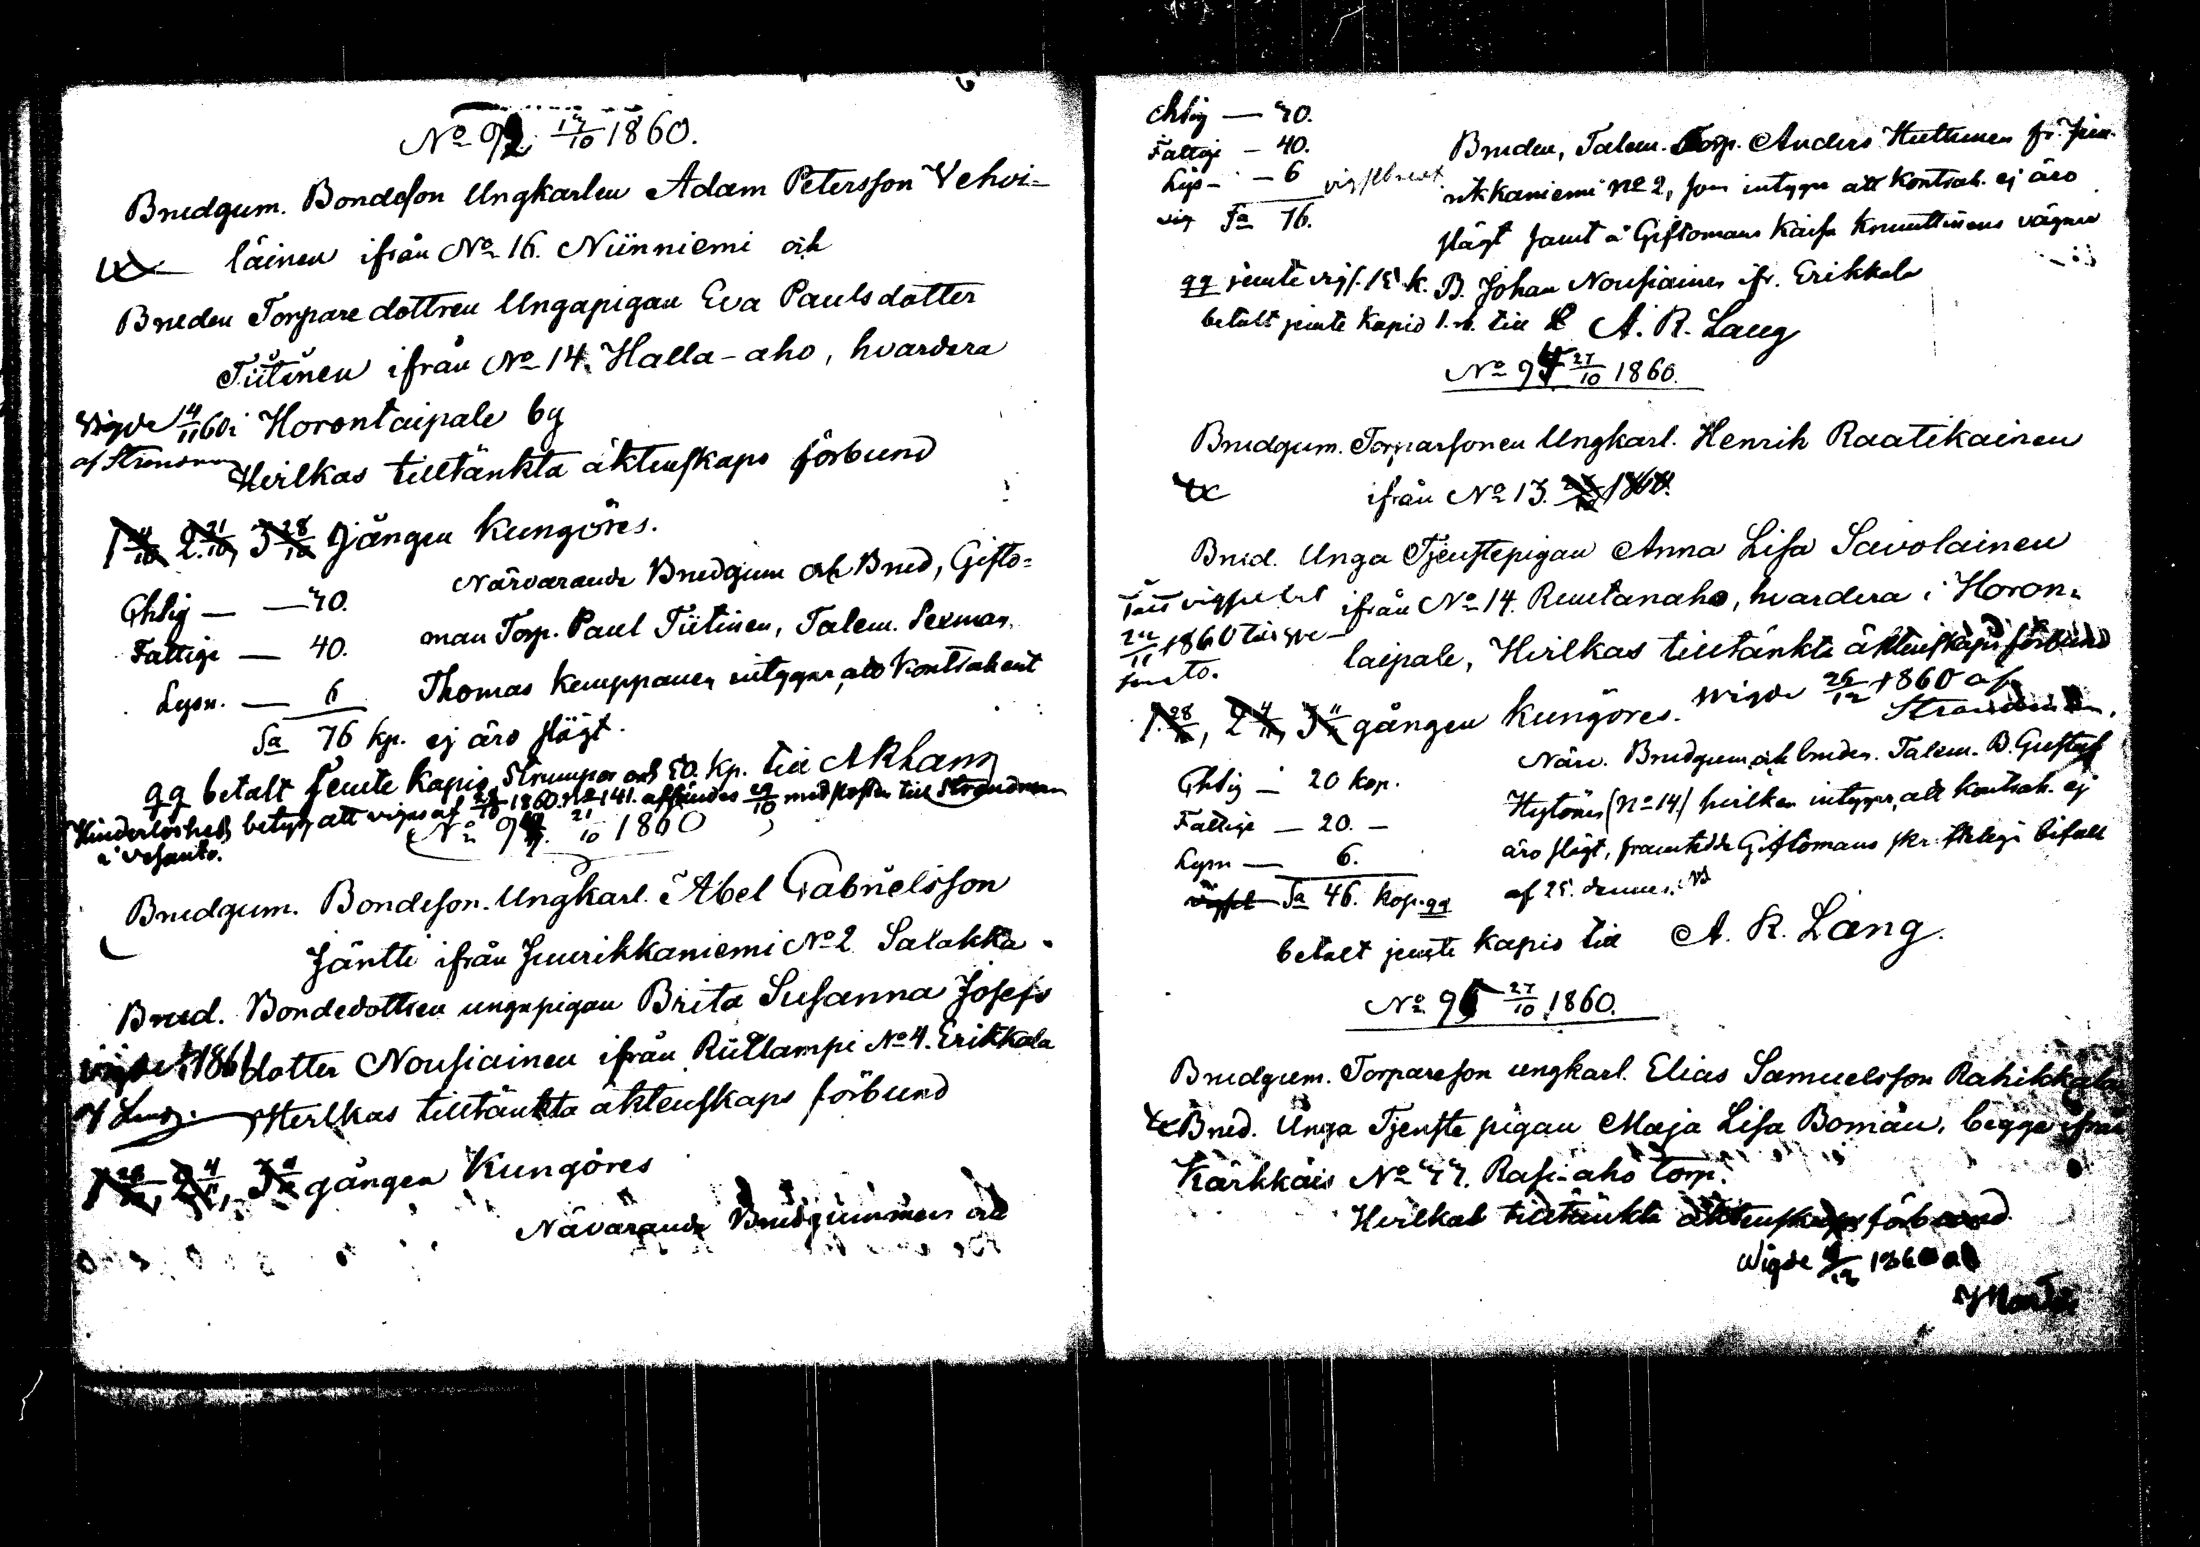 No 92 17/10 1860.
Brudgum. Bondeson Ungkarlen Adam Petersson Vehvi-
läinen ifrån No 16. Niinniemi och
Bruden Torpare dottren Ungapigan Eva Paulsdotter
Tiitinen ifrån No 14. Halla-aho, hvardera
Vigde 14/11 60 i Horontaipale by
af Strandman Hvilkas tilltänkta äktenskaps förbund
1 14/10 2 21/10, 3 28/10 gången kungöres.
Närvarande Brudgum och Brud, Gifto-
Ghlig — — 30.
man Torp. Paul Tiitinen, Talem. Sexman
Fattige — 40.
Thomas Kemppanen intygar, att Kontrahent
Lysn. — 6
Sa 76 kp. ej äro slägt.
qq betalt jemte kapio, Strumpor och 50. kp. till A R Lang
Hinderlöshets betyg att vigas af 1860. No 141. afsändes 29/10 med posten till Strandman
i Vesanto.
No 93. 21/10 1860
Brudgum. Bondeson. Ungkarl. Abel Gabrielsson
Jäntti ifrån Juurikkaniemi No 2 Salakka-
Brud. Bondedottren ungapigan Brita Susanna Josefs
vigde 1861 dotter Nousiainen ifrån Riitlampi No 4. Erikkala
af Lang. Hvilkas tilltänkta äktenskaps förbund
1 28/10, 2 4/11, 3 11/11 gången Kungöres
Närvarande Brudgummen och
Chlig — 30.
Fattige — 40.
Lys — — 6
Sa 76.
Bruden, Talem. Torp. Anders Huttunen fr. Juu-
rikkaniemi No 2, som intygar att Kontrah. ej äro
slägt samt å Giftomans Kaisa Knuuttinens vägnar
qq jemte vigs. 15 k. B. Johan Nousiainen ifr. Erikkala
betalt jemte Kapio 1. rb. till A. R. Lang
No 94 27/10 1860.
Brudgum. Torparsonen Ungkarl. Henrik Raatikainen
ifrån No 13. 1860.
Brud. Unga Tjenstepigan Anna Lisa Savolainen
ifrån No 14. Ruutanaho, hvardera i Horon-
11 1860 till Ve-
santo.
taipale, Hvilkas tilltänkta äktenskaps förbund
1. 28/10, 2 4/11, 3 11/11 gången kungöres. Wigde 26/12 1860 af
Strandman.
Närv. Brudgum och bruden. Talem. B. Gustaf
Ghlig — 20 kop.
Hytönen (No 14) hvilken intygar, att kontrah. ej
Fattige — 20. —
äro slägt, framtedde Giftomans skr. bifall
Lysn — 6.
af 25. dennes.
Sa 46. kop. qq
betalt jemte kapio till A. R. Lang.
No 95 27/10 1860.
Brudgum. Torpareson ungkarl. Elias Samuelsson Rahikkala
Brud. Unga Tjenste pigan Maja Lisa Boman, begge ifrån
Kärkkäis No 77. Rasi-aho torp.
Hvilkas tilltänkta äktenskaps förbund
Wigde 12 1860 af